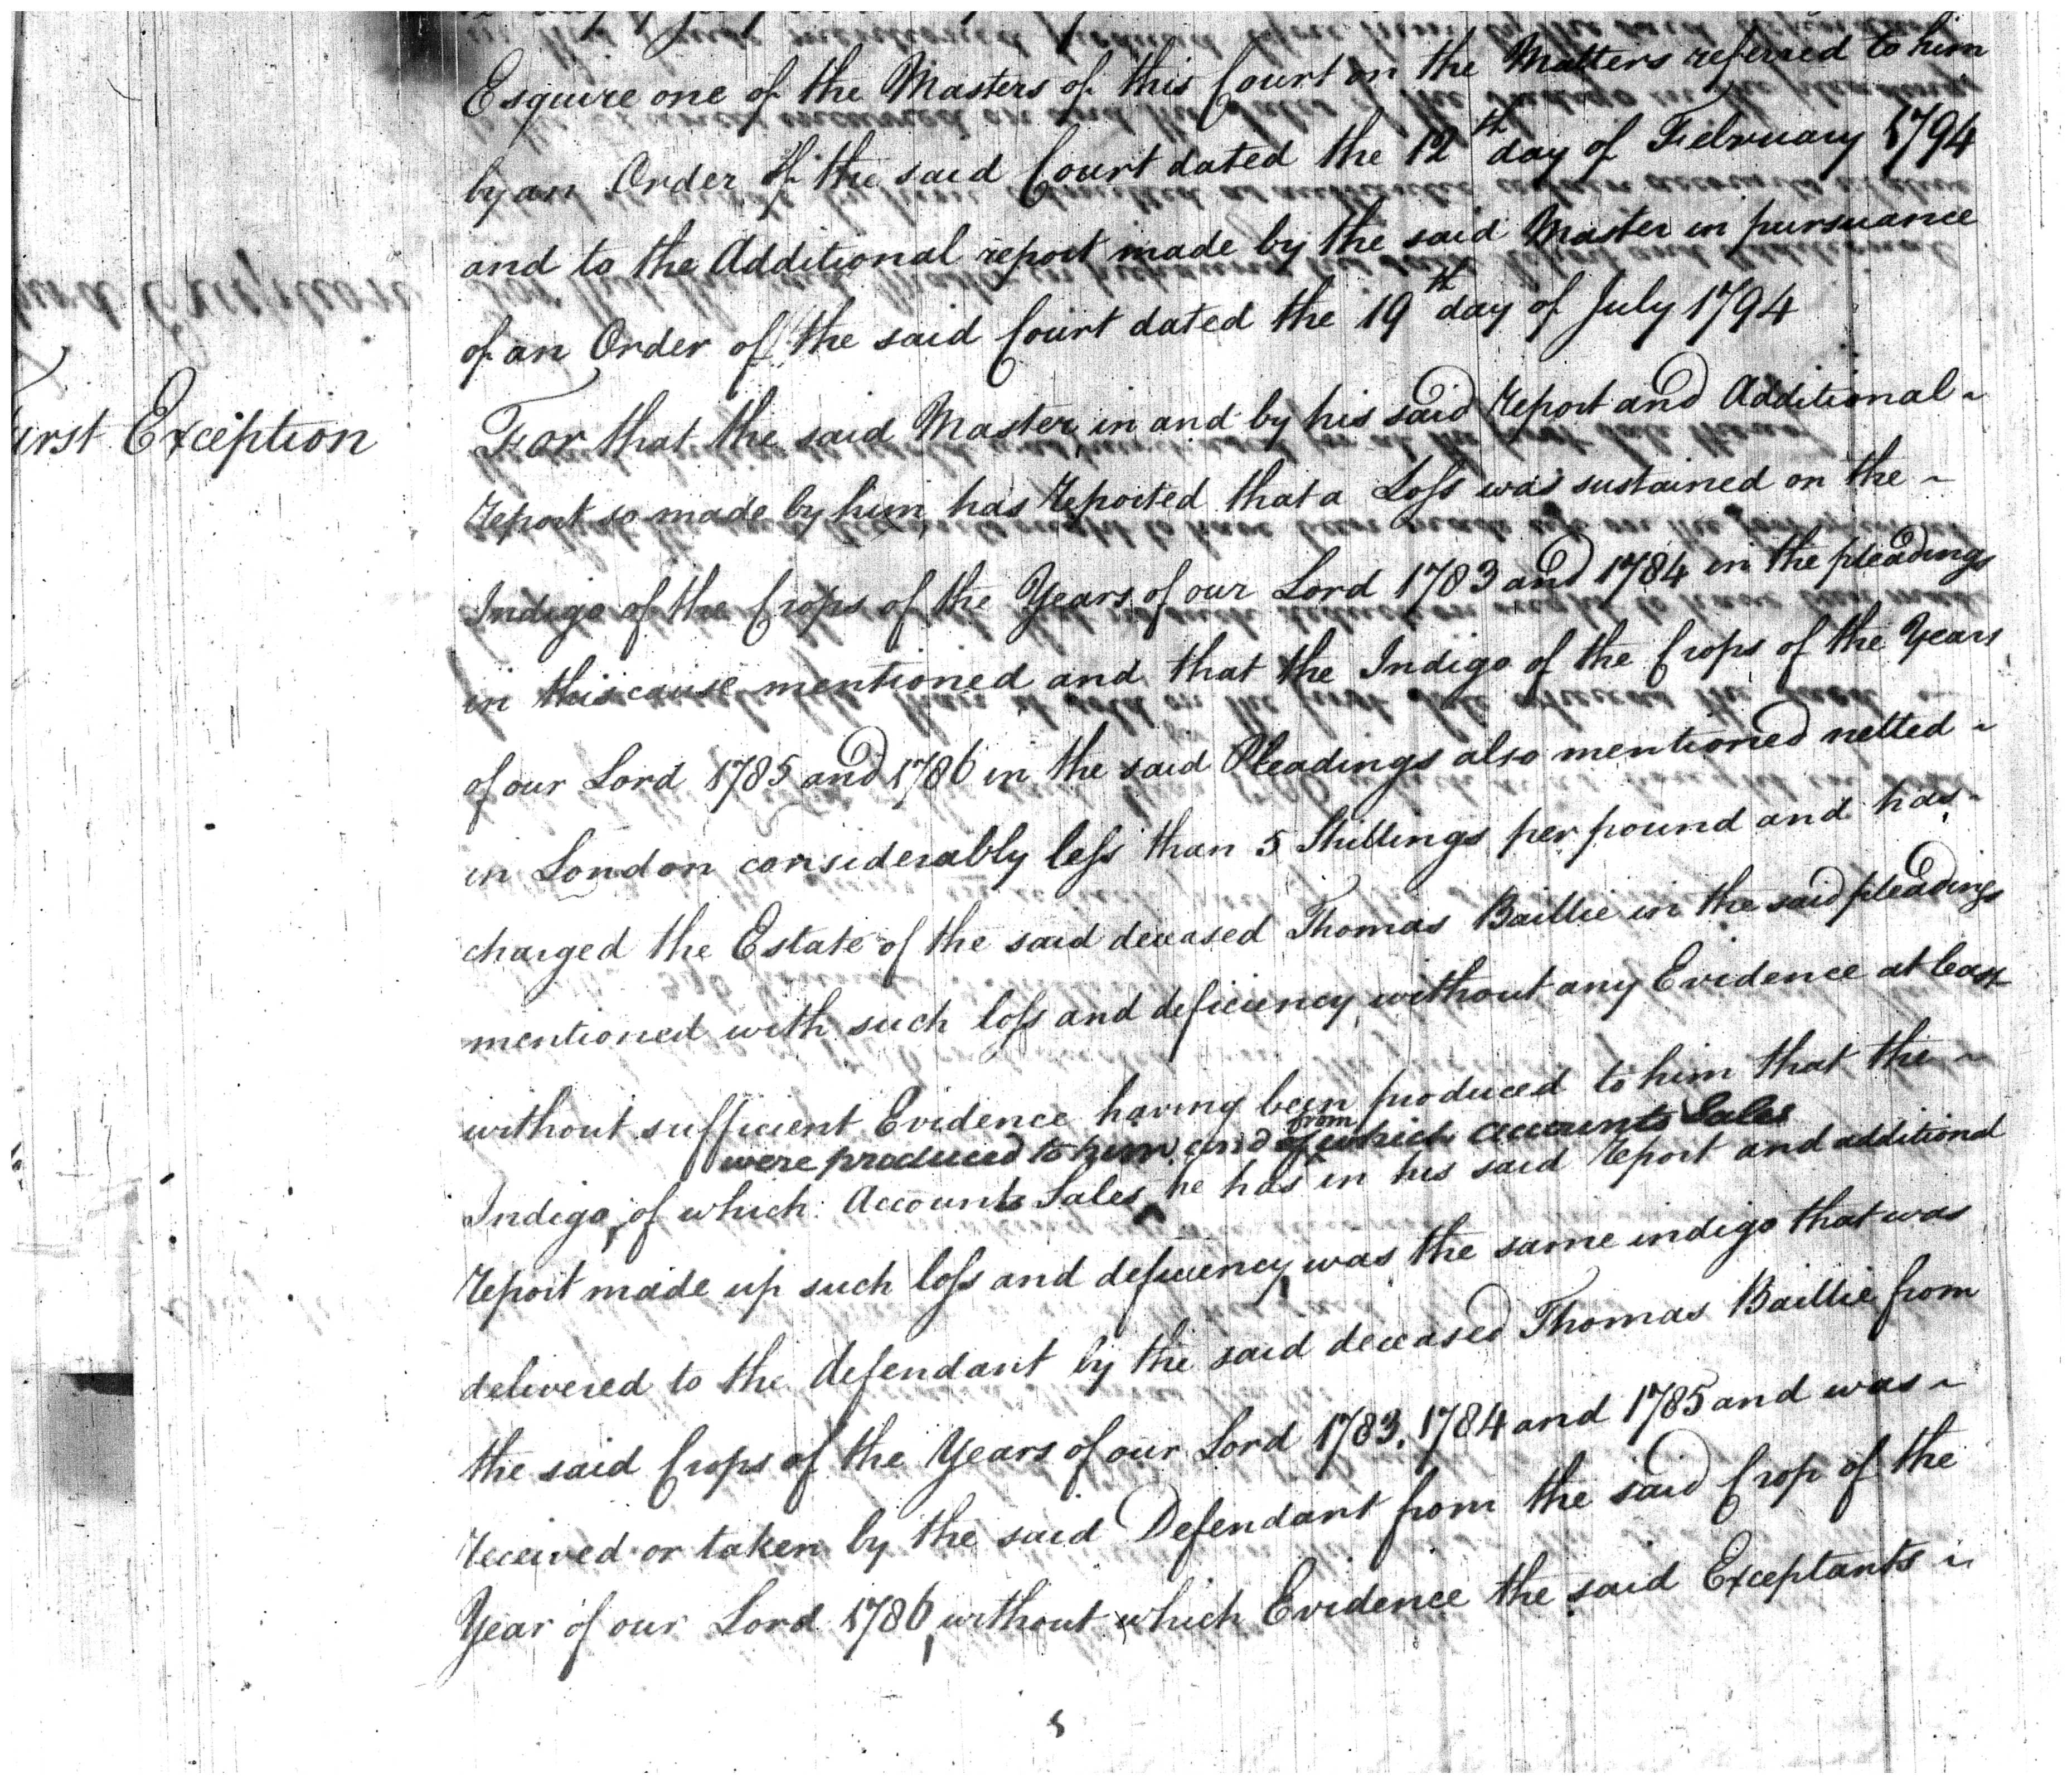 Esquire one of the Masters of this Court on the Matters referred to him
by an Order of the said Court dated the 12th day of February 1794
and to the Additional report made by the said Master in pursuance
of an Order of the said Court dated the 19th day of July 1794
irst Exception
For that the said Master in and by his said Report and Additional ~
Report so made by him has Reported that a Loss was sustained on the ~
Indigo of the Crops of the Years of our Lord 1783 and 1784 in the pleadings
in this cause mentioned and that the Indigo of the Crops of the Years
of our Lord 1785 and 1786 in the said Pleadings also mentioned netted ~
in London considerably less than 5 Shillings per pound and has ~
charged the Estate of the said deceased Thomas Baillie in the said pleadings
mentioned with such loss and deficiency without any Evidence at least
without sufficient Evidence having been produced to him that the ~
were produced to him and of from which accounts Sales
Indigo, of which Accounts Sales ^ he has in his said Report and additional
Report made up such loss and deficiency, was the same indigo that was
delivered to the defendant by the said deceased Thomas Baillie from
the said Crops of the Years of our Lord 1783, 1784 and 1785 and was ~
received or taken by the said Defendant from the said Crop of the
Year of our Lord 1786, without which Evidence the said Exceptants ~